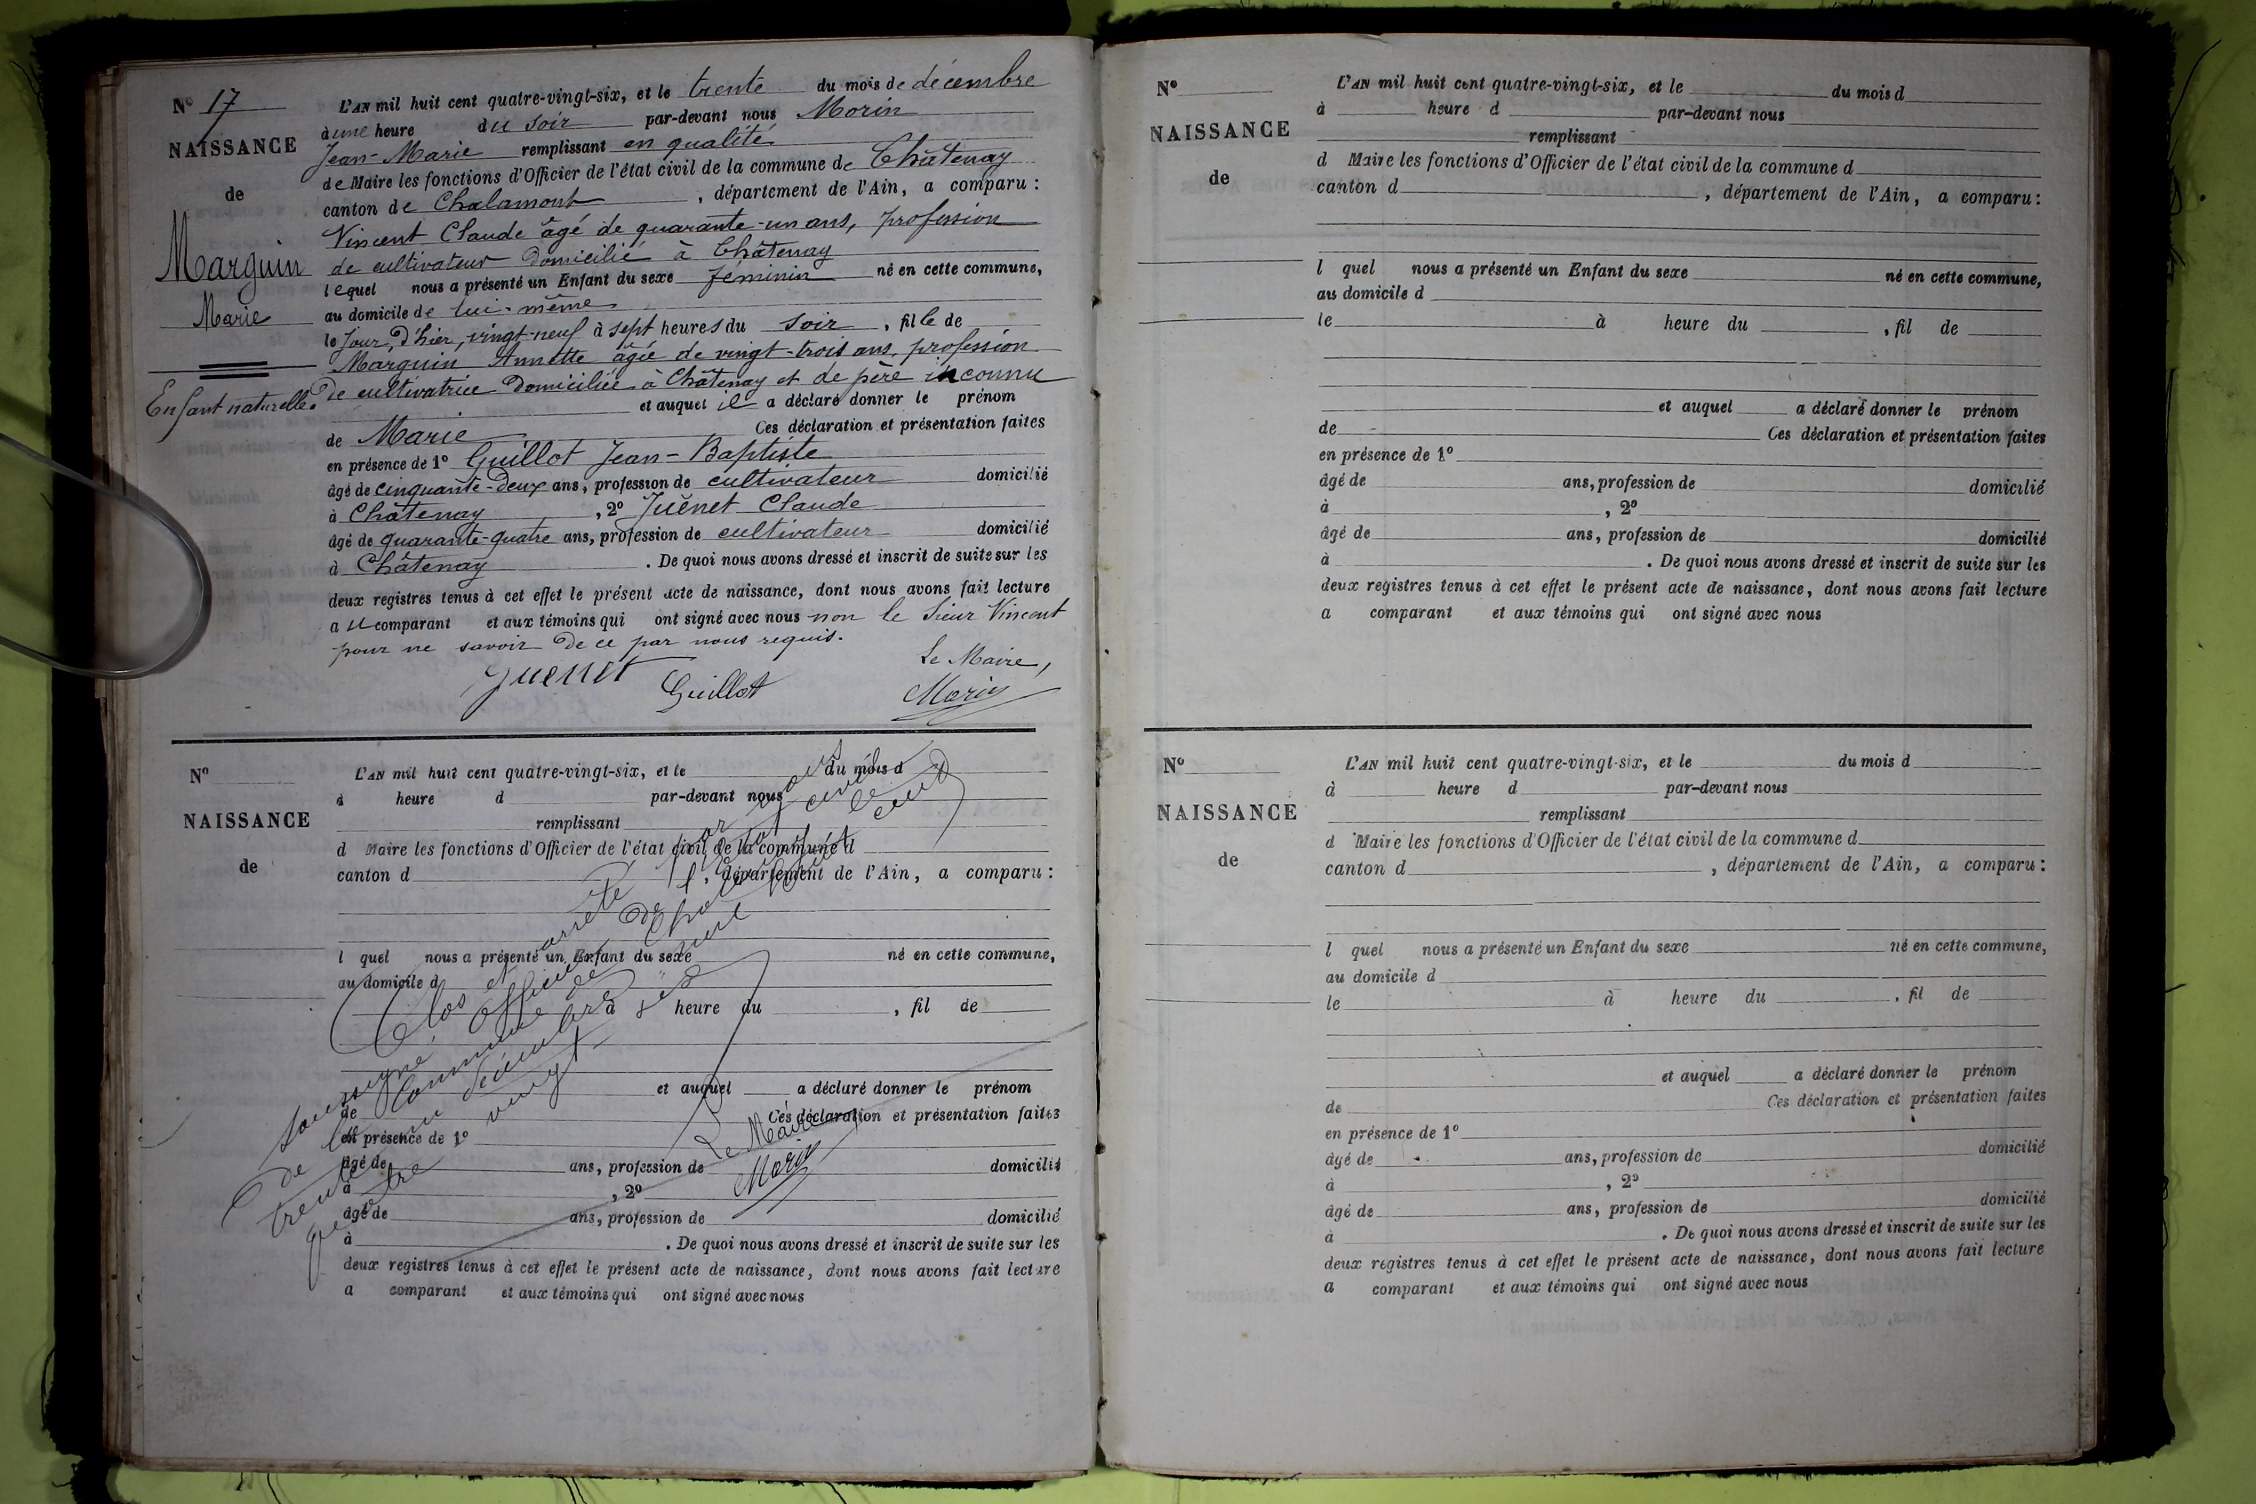 N° 17
NAISSANCE
de
Marguin
Marie
Enfant naturelle.
L'AN mil huit cent quatre-vingt-six, et le trente du mois de décembre
à une heure du soir par-devant nous Morin
Jean-Marie remplissant en qualité
de Maire les fonctions d'Officier de l'état civil de la commune de Châtenay
canton de Chalamont, département de l'Ain, a comparu :
Vincent Claude âgé de quarante-un ans, profession
de cultivateur domicilié à Châtenay
lequel nous a présenté un Enfant du sexe féminin né en cette commune,
au domicile de lui-même
le jour d'hier, vingt-neuf à sept heures du soir, fille de
Marguin Annette âgée de vingt-trois ans, profession
de cultivatrice domiciliée à Châtenay et de père inconnu
et auquel il a déclaré donner le prénom
de Marie Ces déclaration et présentation faites
en présence de 1° Guillot Jean-Baptiste
âgé de cinquante-deux ans, profession de cultivateur domicilié
à Châtenay, 2° Juënet Claude
âgé de quarante-quatre ans, profession de cultivateur domicilié
à Châtenay. De quoi nous avons dressé et inscrit de suite sur les
deux registres tenus à cet effet le présent acte de naissance, dont nous avons fait lecture
au comparant et aux témoins qui ont signé avec nous non le sieur Vincent
pour ne savoir de ce par nous requis.
Le Maire,
Juenet Guillot Morin
N°
NAISSANCE
de
L'AN mil huit cent quatre-vingt-six, et le du mois d
à heure d par-devant nous
remplissant
d Maire les fonctions d'Officier de l'état civil de la commune d
canton d , département de l'Ain, a comparu :
l quel nous a présenté un Enfant du sexe né en cette commune,
au domicile d
à heure du , fil de
et auquel a déclaré donner le prénom
de Ces déclaration et présentation faites
en présence de 1°
âgé de ans, profession de domicilié
à , 2°
âgé de ans, profession de domicilié
à . De quoi nous avons dressé et inscrit de suite sur les
deux registres tenus à cet effet le présent acte de naissance, dont nous avons fait lecture
a comparant et aux témoins qui ont signé avec nous
Clos et arrêté par nous
soussigné, officier de l'Etat civil
de la Commune de Châtenay le
trente un décembre mil huit cent
quatre vingt-six
Le Maire
Morin
N°
NAISSANCE
de
L'AN mil huit cent quatre-vingt-six, et le du mois d
à heure d par-devant nous
remplissant
d Maire les fonctions d'Officier de l'état civil de la commune d
canton d , département de l'Ain, a comparu :
l quel nous a présenté un Enfant du sexe né en cette commune,
au domicile d
le à heure du , fil de
et auquel a déclaré donner le prénom
de Ces déclaration et présentation faites
en présence de 1°
âgé de ans, profession de domicilié
à , 2°
âgé de ans, profession de domicilié
à . De quoi nous avons dressé et inscrit de suite sur les
deux registres tenus à cet effet le présent acte de naissance, dont nous avons fait lecture
a comparant et aux témoins qui ont signé avec nous
N°
NAISSANCE
de
L'AN mil huit cent quatre-vingt-six, et le du mois d
à heure d par-devant nous
remplissant
d Maire les fonctions d'Officier de l'état civil de la commune d
canton d , département de l'Ain, a comparu :
l quel nous a présenté un Enfant du sexe né en cette commune,
au domicile d
le à heure du , fil de
et auquel a déclaré donner le prénom
de Ces déclaration et présentation faites
en présence de 1°
âgé de ans, profession de domicilié
à , 2°
âgé de ans, profession de domicilié
à . De quoi nous avons dressé et inscrit de suite sur les
deux registres tenus à cet effet le présent acte de naissance, dont nous avons fait lecture
a comparant et aux témoins qui ont signé avec nous